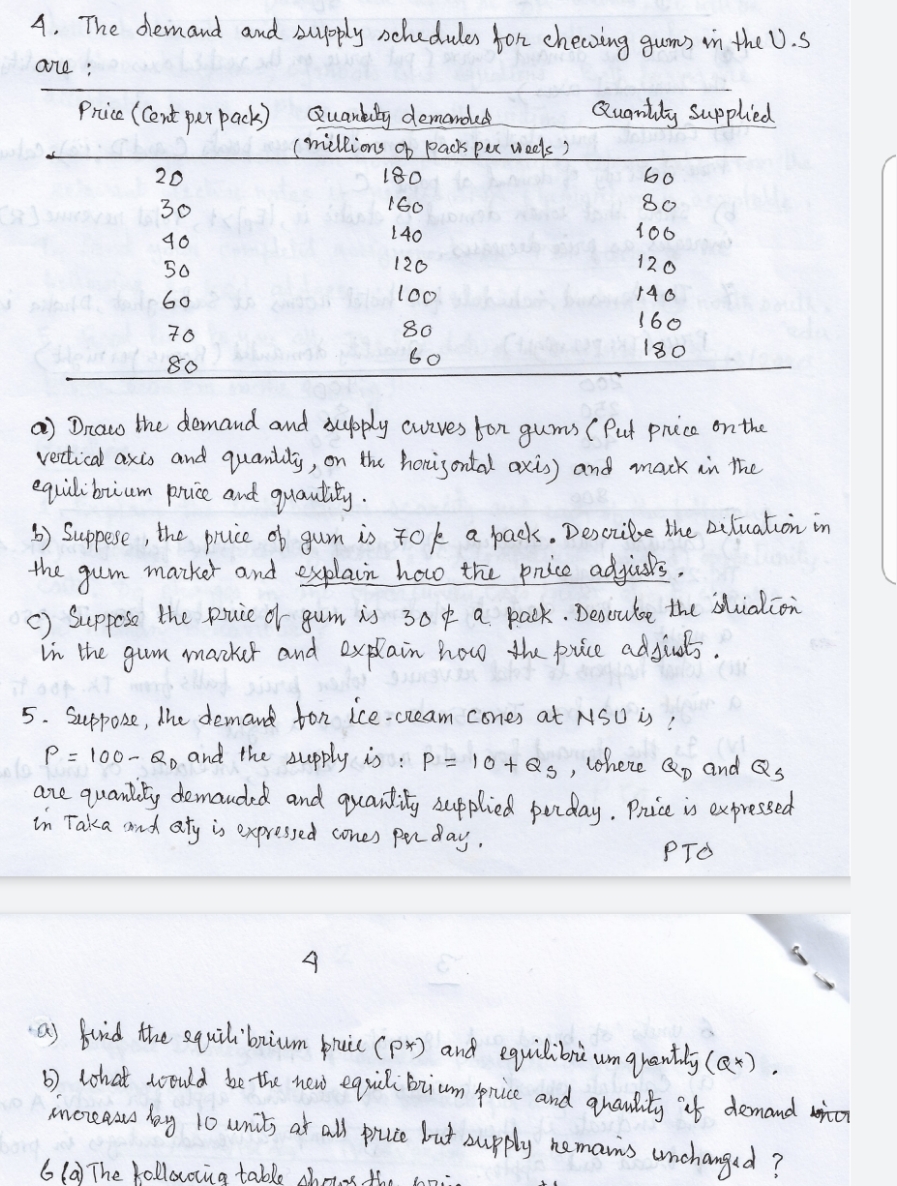 4. The demand and supply schedules for chewing gums in the U.S
are :
Price (Cent per pack) Quantity demanded Quantity Supplied
(millions of pack per week)
20 180 60
30 160 80
40 140 100
50 120 120
60 100 140
70 80 160
80 60 180
a) Draw the demand and supply curves for gums (Put price on the
vertical axis and quantity, on the horizontal axis) and mark in the
equilibrium price and quantity.
b) Suppese, the price of gum is 70 ¢ a pack. Describe the situation in
the gum market and explain how the price adjusts.
c) Suppose the price of gum is 30 ¢ a pack. Describe the situation
in the gum market and explain how the price adjusts.
5. Suppose, the demand for ice-cream cones at NSU is ;
P = 100 - QD and the supply is : P = 10 + QS, where QD and QS
are quantity demanded and quantity supplied per day. Price is expressed
in Taka and qty is expressed cones per day.
PTO
4
a) find the equilibrium price (P*) and equilibrium quantity (Q*).
b) what would be the new equilibrium price and quantity if demand
increases by 10 units at all price but supply remains unchanged ?
6 (a) The following table shows the